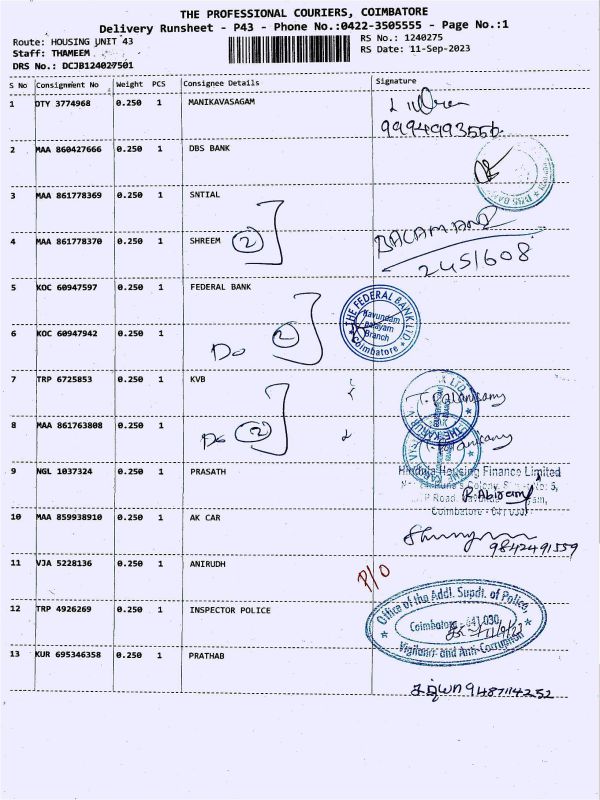 THE PROFESSIONAL COURIERS, COIMBATORE
Delivery Runsheet - P43 - Phone No.:0422-3505555 - Page No.:1
Route: HOUSING UNIT 43
Staff: THAMEEM
DRS No.: DCJB124027501
RS No.: 1240275
RS Date: 11-Sep-2023
S No Consignment No Weight PCS Consignee Details Signature
1 DTY 3774968 0.250 1 MANIKAVASAGAM
9994993556
2 MAA 860427666 0.250 1 DBS BANK
3 MAA 861778369 0.250 1 SNTIAL
4 MAA 861778370 0.250 1 SHREEM 2 BALAMANI
2451608
5 KOC 60947597 0.250 1 FEDERAL BANK
THE FEDERAL BANK LTD
Kavundam
palayam
Branch
Coimbatore
6 KOC 60947942 0.250 1 Do 2
7 TRP 6725853 0.250 1 KVB T. Palanisamy
8 MAA 861763808 0.250 1 Do 2
9 NGL 1037324 0.250 1 PRASATH Housing Finance Limited
R. Abirami
Coimbatore
10 MAA 859938910 0.250 1 AK CAR
9842491559
11 VJA 5228136 0.250 1 ANIRUDH P/O
12 TRP 4926269 0.250 1 INSPECTOR POLICE
Office of the Addl. Supdt. of Police,
Coimbatore - 641 030
Vigilance and Anti-Corruption
13 KUR 695346358 0.250 1 PRATHAB
9487114252